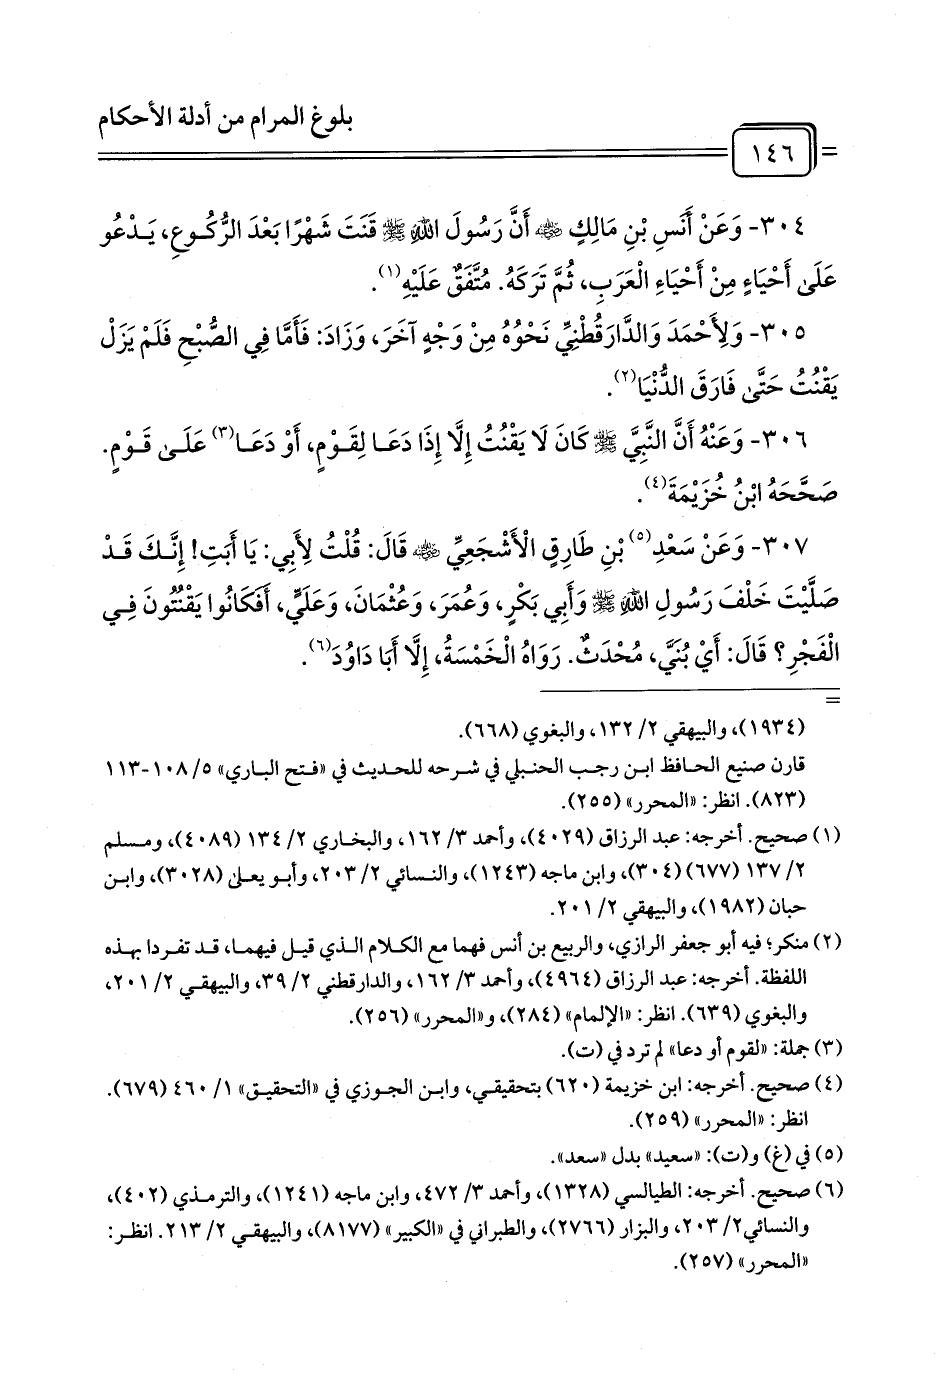 بلوغ المرام من أدلة الأحكام
١٤٦
٣٠٤- وَعَنْ أَنَسِ بْنِ مَالِكٍ ﵁ أَنَّ رَسُولَ اللهِ ﷺ قَنَتَ شَهْرًا بَعْدَ الرُّكُوعِ، يَدْعُو
عَلَى أَحْيَاءٍ مِنْ أَحْيَاءِ الْعَرَبِ، ثُمَّ تَرَكَهُ. مُتَّفَقٌ عَلَيْهِ(١).
٣٠٥- وَلِأَحْمَدَ وَالدَّارَقُطْنِيِّ نَحْوُهُ مِنْ وَجْهٍ آخَرَ، وَزَادَ: فَأَمَّا فِي الصُّبْحِ فَلَمْ يَزَلْ
يَقْنُتُ حَتَّى فَارَقَ الدُّنْيَا(٢).
٣٠٦- وَعَنْهُ أَنَّ النَّبِيَّ ﷺ كَانَ لَا يَقْنُتُ إِلَّا إِذَا دَعَا لِقَوْمٍ، أَوْ دَعَا(٣) عَلَى قَوْمٍ.
صَحَّحَهُ ابْنُ خُزَيْمَةَ(٤).
٣٠٧- وَعَنْ سَعْدِ(٥) بْنِ طَارِقٍ الْأَشْجَعِيِّ ﵁ قَالَ: قُلْتُ لِأَبِي: يَا أَبَتِ! إِنَّكَ قَدْ
صَلَّيْتَ خَلْفَ رَسُولِ اللهِ ﷺ وَأَبِي بَكْرٍ، وَعُمَرَ، وَعُثْمَانَ، وَعَلِيٍّ، أَفَكَانُوا يَقْنُتُونَ فِي
الْفَجْرِ؟ قَالَ: أَيْ بُنَيَّ، مُحْدَثٌ. رَوَاهُ الْخَمْسَةُ، إِلَّا أَبَا دَاوُدَ(٦).
=
(١٩٣٤)، والبيهقي ٢/ ١٣٢، والبغوي (٦٦٨).
قارن صنيع الحافظ ابن رجب الحنبلي في شرحه للحديث في «فتح الباري» ٥/ ١٠٨-١١٣
(٨٢٣). انظر: «المحرر» (٢٥٥).
(١) صحيح. أخرجه: عبد الرزاق (٤٠٢٩)، وأحمد ٣/ ١٦٢، والبخاري ٢/ ١٣٤ (٤٠٨٩)، ومسلم
٢/ ١٣٧ (٦٧٧) (٣٠٤)، وابن ماجه (١٢٤٣)، والنسائي ٢/ ٢٠٣، وأبو يعلى (٣٠٢٨)، وابن
حبان (١٩٨٢)، والبيهقي ٢/ ٢٠١.
(٢) منكر؛ فيه أبو جعفر الرازي، والربيع بن أنس فهما مع الكلام الذي قيل فيهما، قد تفردا بهذه
اللفظة. أخرجه: عبد الرزاق (٤٩٦٤)، وأحمد ٣/ ١٦٢، والدارقطني ٢/ ٣٩، والبيهقي ٢/ ٢٠١،
والبغوي (٦٣٩). انظر: «الإلمام» (٢٨٤)، و«المحرر» (٢٥٦).
(٣) جملة: «لقوم أو دعا» لم ترد في (ت).
(٤) صحيح. أخرجه: ابن خزيمة (٦٢٠) بتحقيقي، وابن الجوزي في «التحقيق» ١/ ٤٦٠ (٦٧٩).
انظر: «المحرر» (٢٥٩).
(٥) في (غ) و(ت): «سعيد» بدل «سعد».
(٦) صحيح. أخرجه: الطيالسي (١٣٢٨)، وأحمد ٣/ ٤٧٢، وابن ماجه (١٢٤١)، والترمذي (٤٠٢)،
والنسائي ٢/ ٢٠٣، والبزار (٢٧٦٦)، والطبراني في «الكبير» (٨١٧٧)، والبيهقي ٢/ ٢١٣. انظر:
«المحرر» (٢٥٧).